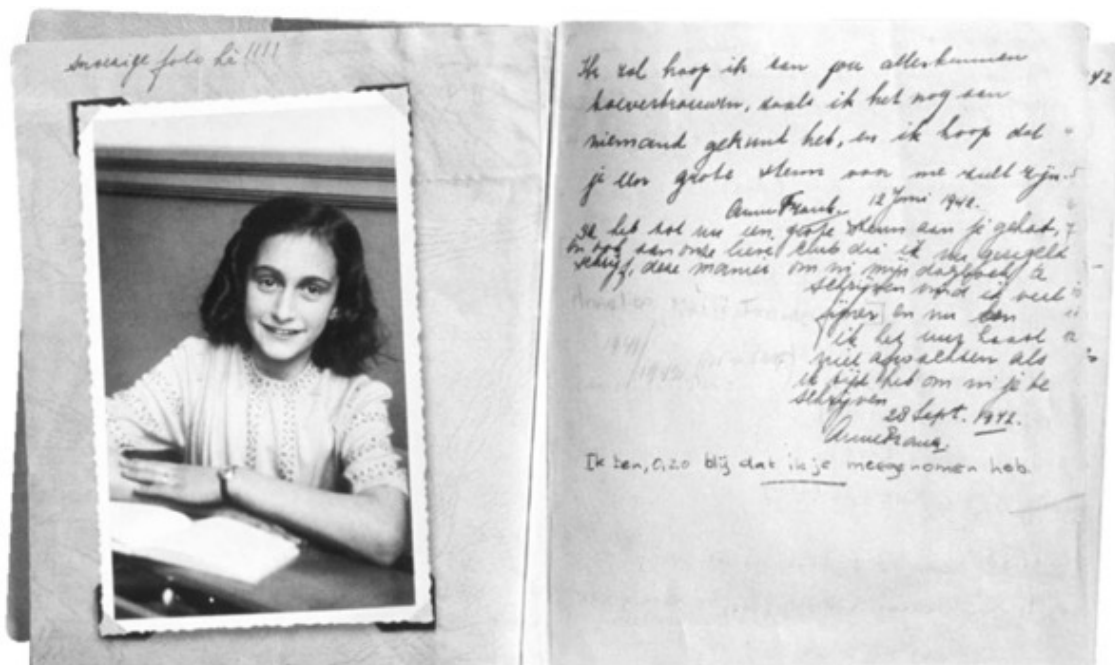 snoezige foto hè!!!!
Ik zal hoop ik aan jou alles kunnen
toevertrouwen, zoals ik het nog aan
niemand gekund heb, en ik hoop dat
je een grote steun voor me zult zijn.
Anne Frank. 12 Juni 1942.
Ik heb tot nu een grote steun aan je gehad,
en ook aan onze lieve club die ik nu geregeld
schrijf, deze manier om in mijn dagboek te
schrijven vind ik veel
fijner en nu kan
ik het uur haast
niet afwachten als
ik tijd heb om in je te
schrijven
28 Sept. 1942.
Anne Frank.
Ik ben, o, zo blij dat ik je meegenomen heb.
42